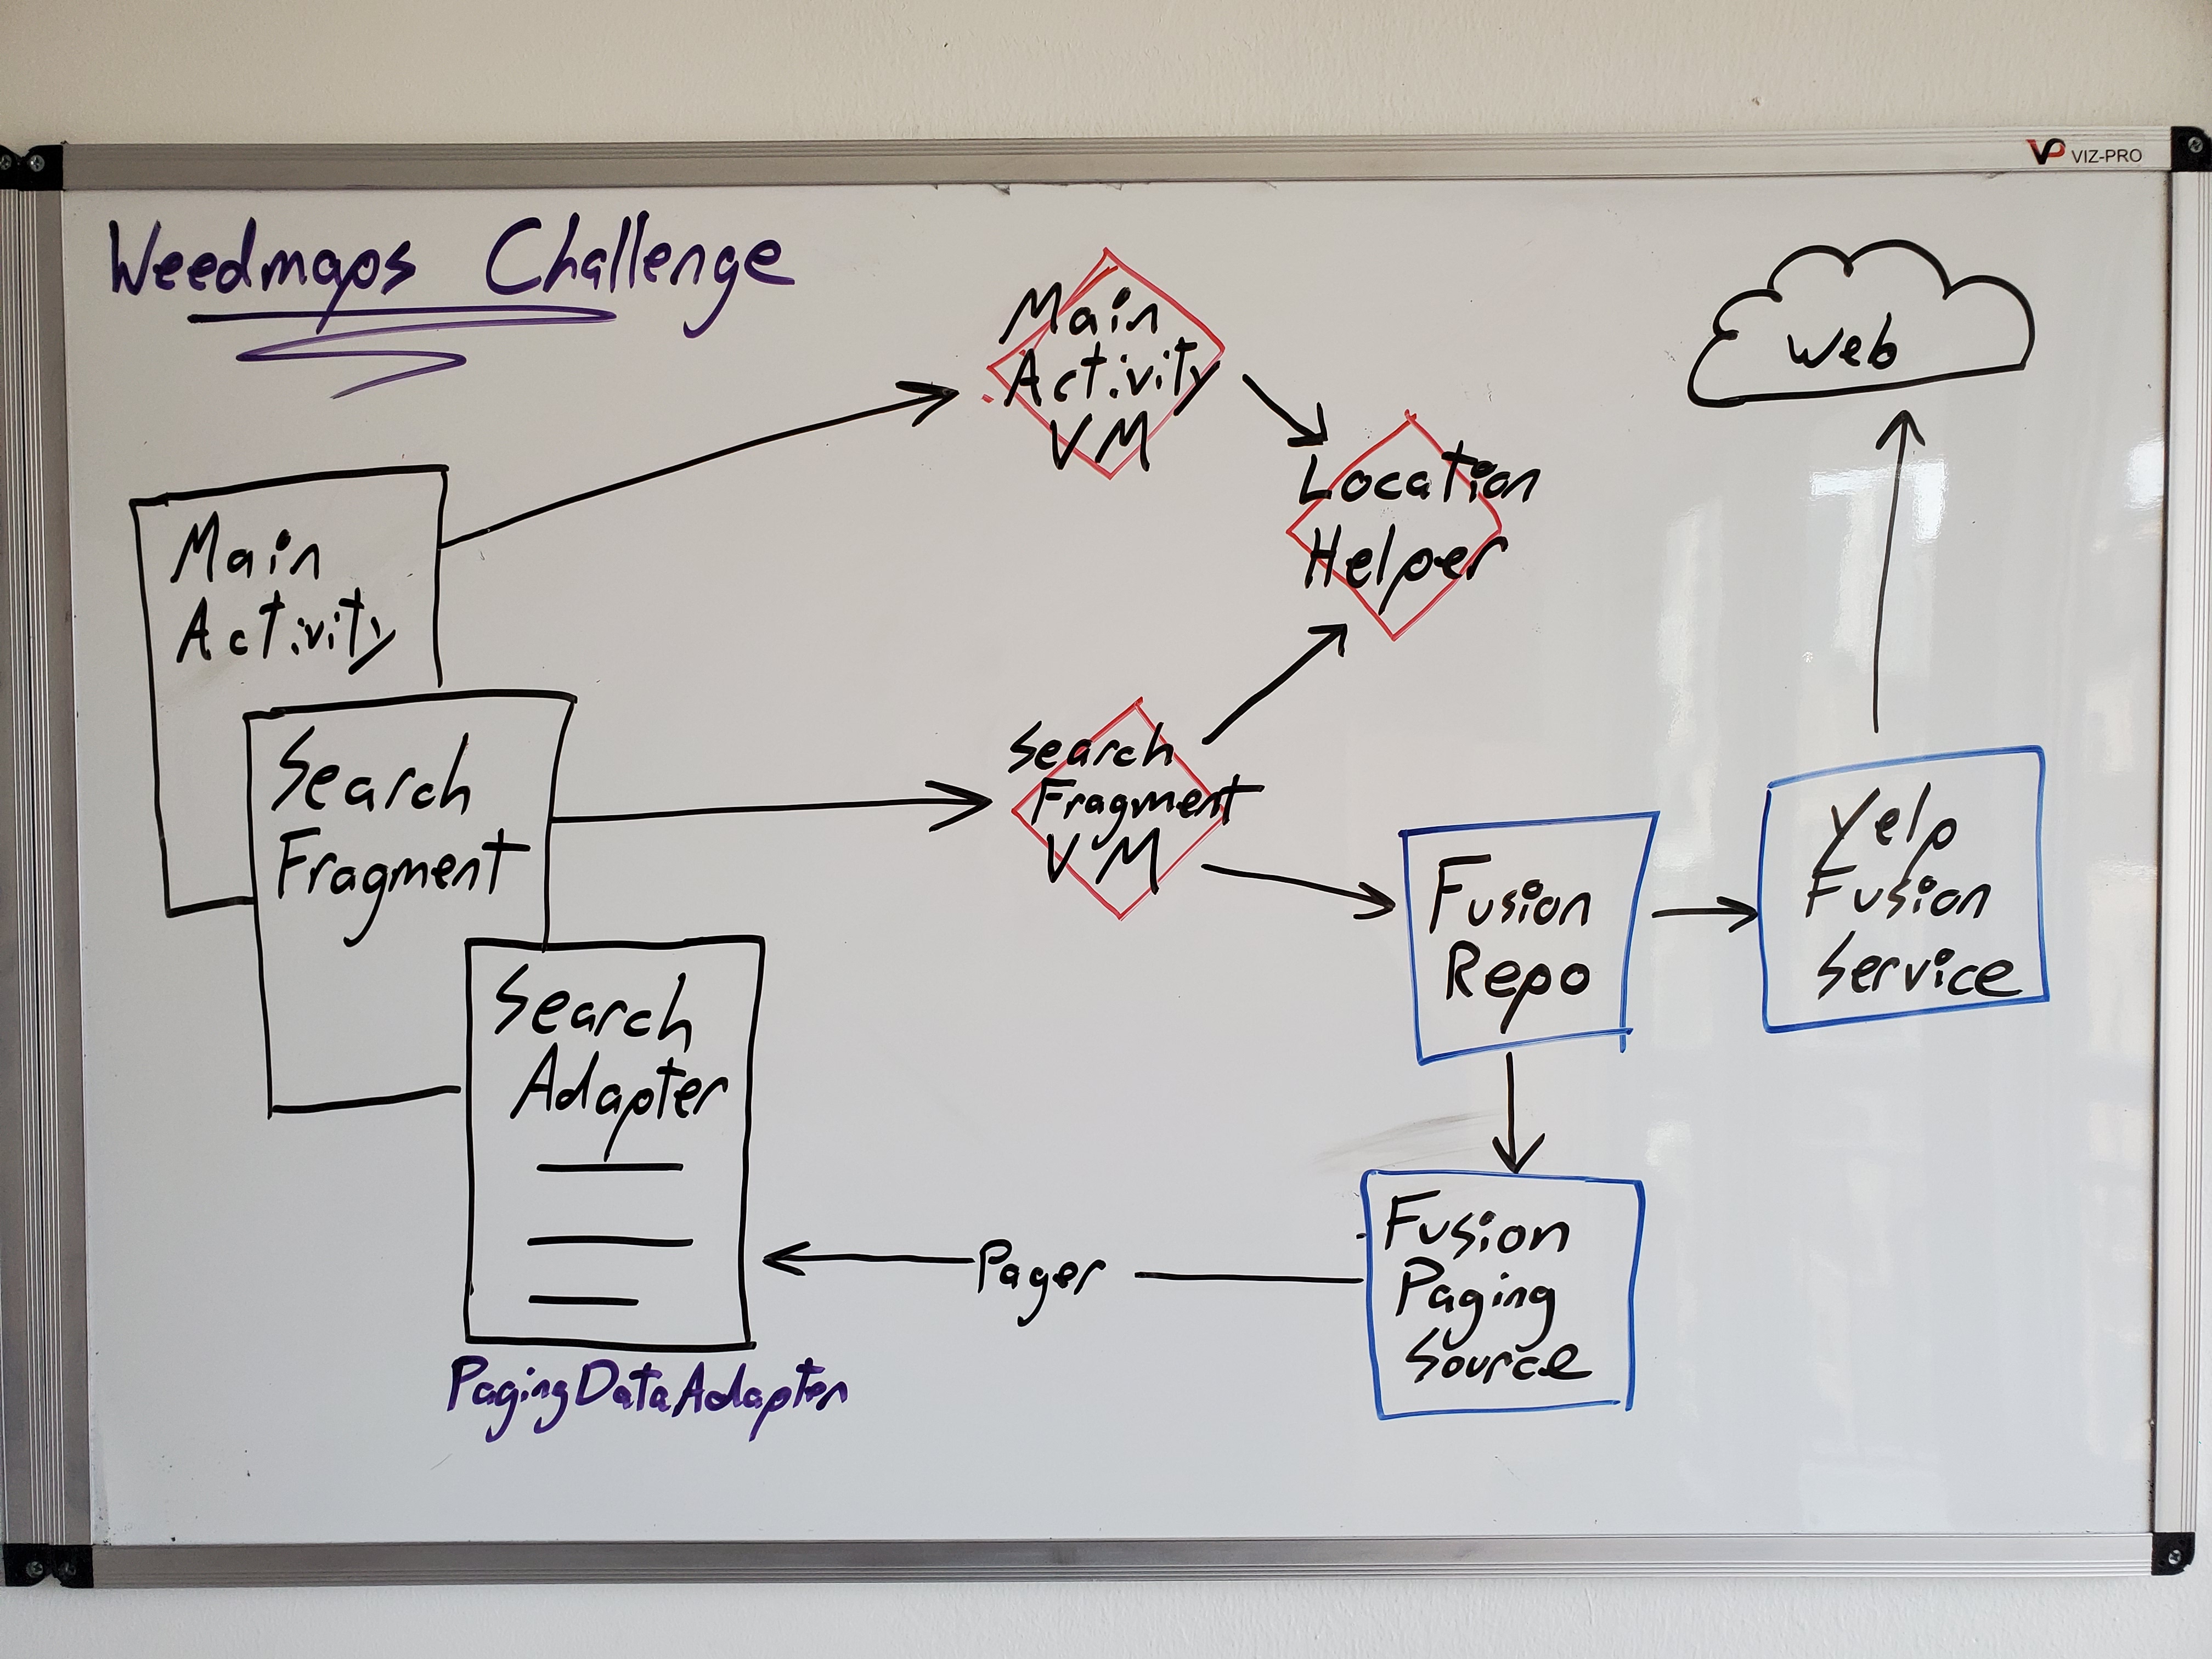 VP VIZ-PRO
Weedmaps Challenge
Main
Activity
VM
Web
Location
Helper
Main
Activity
Search
Fragment
Search
Fragment
VM
Fusion
Repo
Yelp
Fusion
Service
Search
Adapter
Pager
Fusion
Paging
Source
PagingDataAdapter